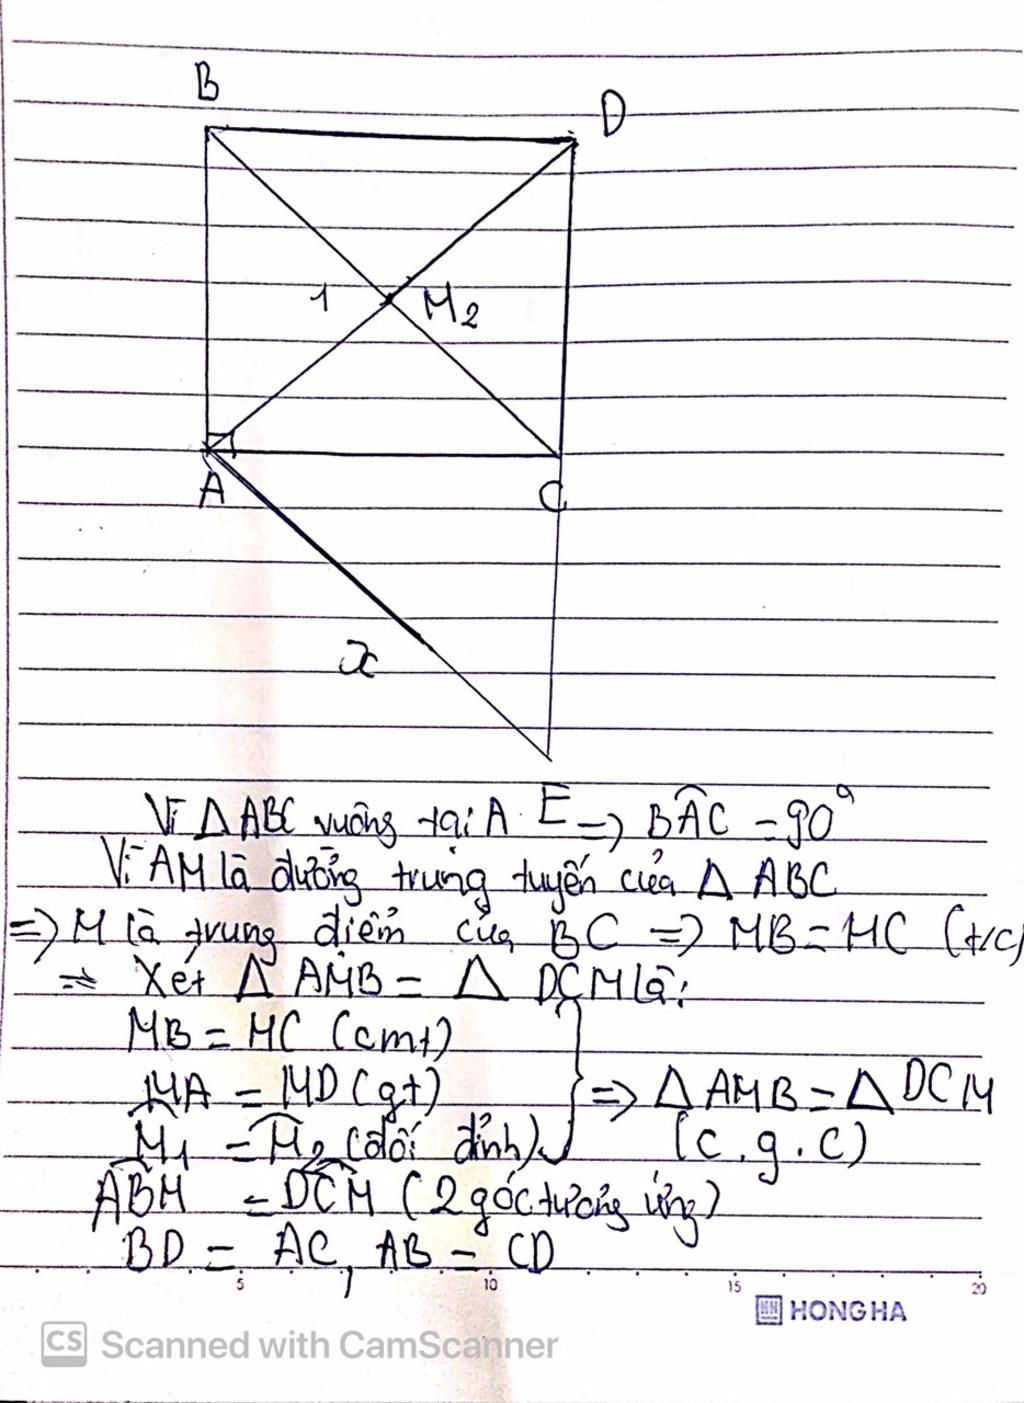 B
D
1
M2
A
C
x
Vì Δ ABC vuông tại A E => BÂC = 90°
Vì AM là đường trung tuyến của Δ ABC
=> M là trung điểm của BC => MB = MC (t/c)
=> Xét Δ AMB = Δ DCM là:
MB = MC (cmt)
MA = MD (gt)
=> Δ AMB = Δ DCM
M1 = M2 (đối đỉnh)
(c.g.c)
ABM = DCM (2 góc tương ứng)
BD = AC, AB = CD
5 10 15 20
HH HONG HA
CS Scanned with CamScanner